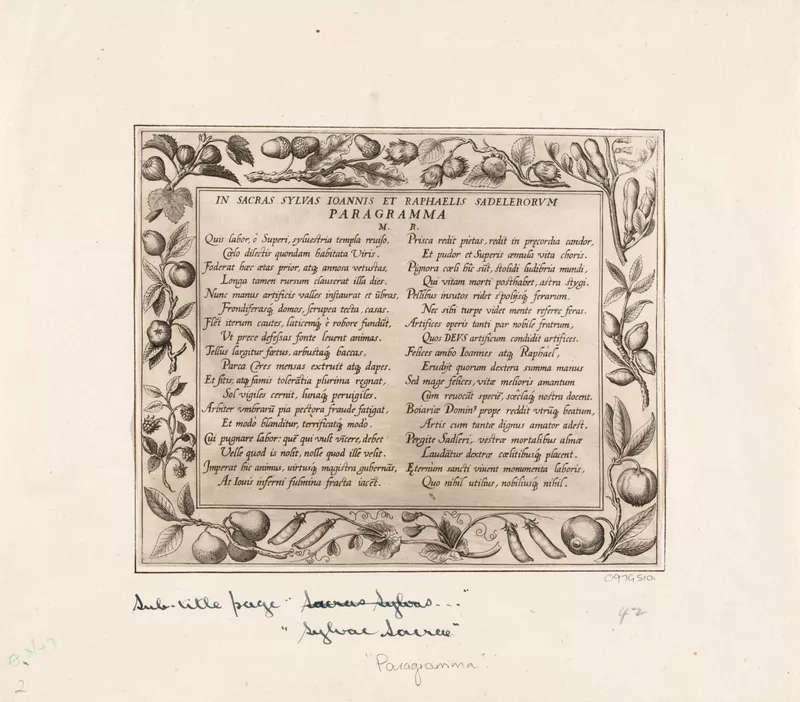 IN SACRAS SYLVAS IOANNIS ET RAPHAELIS SADELERORVM
PARAGRAMMA
M. R.
Quis labor, ô Superi, syluestria templa reuiso,
Cœlo dilectis quondam habitata Viris.
Foderat hæc ætas prior, atq; annosa vetustas,
Longa tamen rursum clauserat illa dies.
Nunc manus artificis valles instaurat et ūbras,
Frondiferasq; domos, scrupea tecta, casas.
Flēt iterum cautes, laticemq; è robore fundūt,
Vt prece defessas fonte leuent animas.
Tellus largitur fœtus, arbustaq; baccas,
Parca Ceres mensas extruit atq; dapes.
Et sitis, atq; famis tolerātia plurima regnat,
Sol vigiles cernit, lunaq; peruigiles.
Arbiter vmbrarū pia pectora fraude fatigat,
Et modò blanditur, terrificatq; modò.
Cui pugnare labor: quē qui vult vīcere, debet
Velle quod is nolit, nolle quod ille velit.
Imperat hîc animus, uirtusq; magistra gubernās,
At Iouis inferni fulmina fracta iacēt.
Prisca redit pietas, redit in præcordia candor,
Et pudor et Superis æmula vita choris.
Pignora cœli hîc sūt, stolidi ludibria mundi,
Qui vitam morti posthabet, astra stygi.
Pellibus inutos ridet spolijsq; ferarum,
Nec sibi turpe videt mente referre feras.
Artifices operis tanti par nobile fratrum,
Quos DEVS artificum condidit artifices.
Felices ambo Ioannes atq; Raphaël,
Erudijt quorum dextera summa manus
Sed mage felices, vitæ melioris amantum
Cùm reuocāt speciē, sæclaq; nostra docent.
Boiariæ Dominº prope reddit vtrūq; beatum,
Artis cum tantæ dignus amator adest.
Pergite Sadleri, vestræ mortalibus almæ
Laudātur dextræ cœlitibusq; placent.
Eternùm sancti viuent monumenta laboris,
Quo nihil utilius, nobiliusq; nihil.
097G510.
Sub-title page "Sacras Sylvas..."
"Sylvae Sacrae"
42
"Paragramma".
2